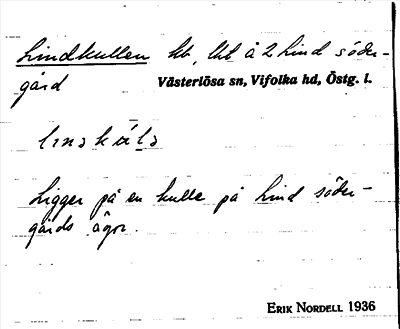 Lindkullen hb, lht å 2 Lind söder-
gård Västerlösa sn, Vifolka hd, Östg. l.
Ligger på en kulle på Lind söder-
gårds ägor.
ERIK NORDELL 1936